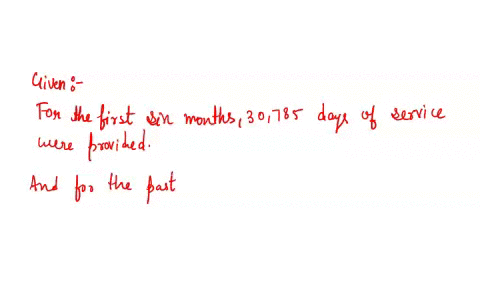 Given:-
For the first six months, 30,785 days of service
were provided.
And for the past